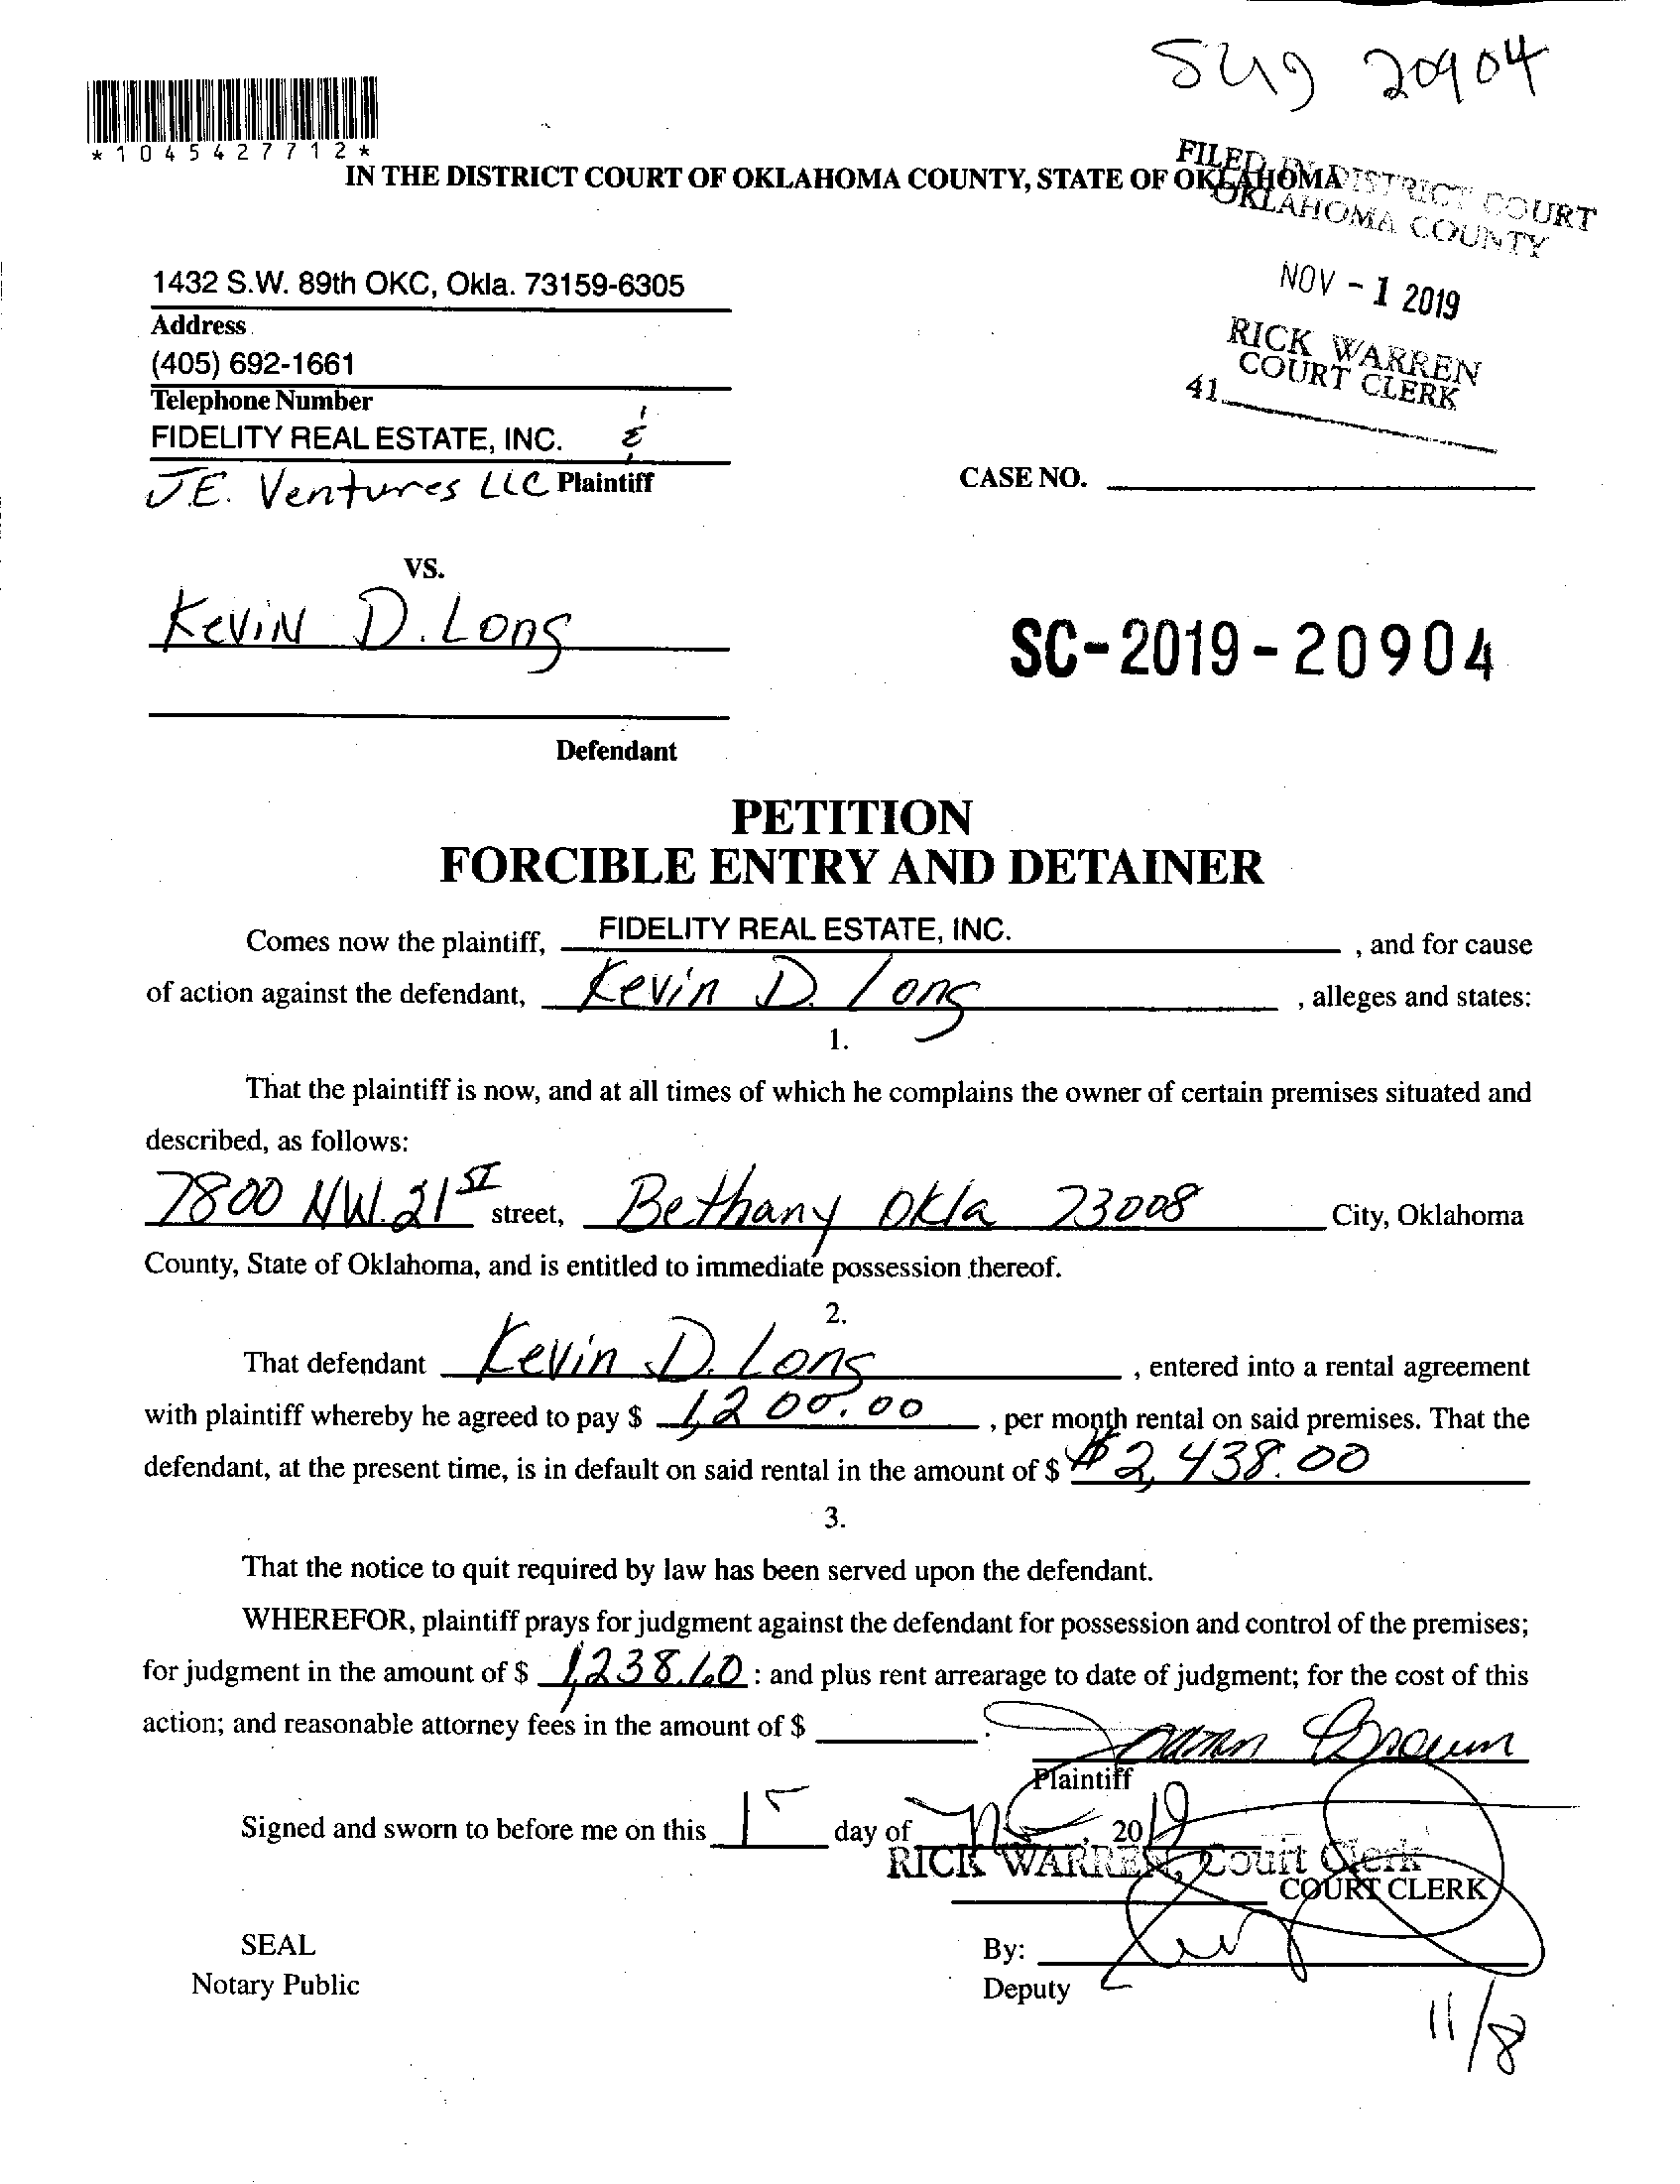 S419 20904
*1045427712*
IN THE DISTRICT COURT OF OKLAHOMA COUNTY, STATE OF OKLAHOMA
FILED IN DISTRICT COURT
OKLAHOMA COUNTY
NOV - 1 2019
RICK WARREN
COURT CLERK
41
1432 S.W. 89th OKC, Okla. 73159-6305
Address
(405) 692-1661
Telephone Number
FIDELITY REAL ESTATE, INC. &
J.E. Ventures LLC Plaintiff
CASE NO.
VS.
Kevin D. Long
SC-2019-20904
Defendant
PETITION
FORCIBLE ENTRY AND DETAINER
Comes now the plaintiff, FIDELITY REAL ESTATE, INC., and for cause
of action against the defendant, Kevin D. Long, alleges and states:
1.
That the plaintiff is now, and at all times of which he complains the owner of certain premises situated and
described, as follows:
7800 NW. 21ST street, Bethany Okla 73008 City, Oklahoma
County, State of Oklahoma, and is entitled to immediate possession thereof.
2.
That defendant Kevin D. Long, entered into a rental agreement
with plaintiff whereby he agreed to pay $ 1,200.00, per month rental on said premises. That the
defendant, at the present time, is in default on said rental in the amount of $ $2,438.00
3.
That the notice to quit required by law has been served upon the defendant.
WHEREFOR, plaintiff prays for judgment against the defendant for possession and control of the premises;
for judgment in the amount of $ 1,238.60 : and plus rent arrearage to date of judgment; for the cost of this
action; and reasonable attorney fees in the amount of $ .
Brown
Plaintiff
Signed and sworn to before me on this 1 day of , 2019
RICK WARREN, Court Clerk
COURT CLERK
SEAL
By:
Notary Public
Deputy
11/8